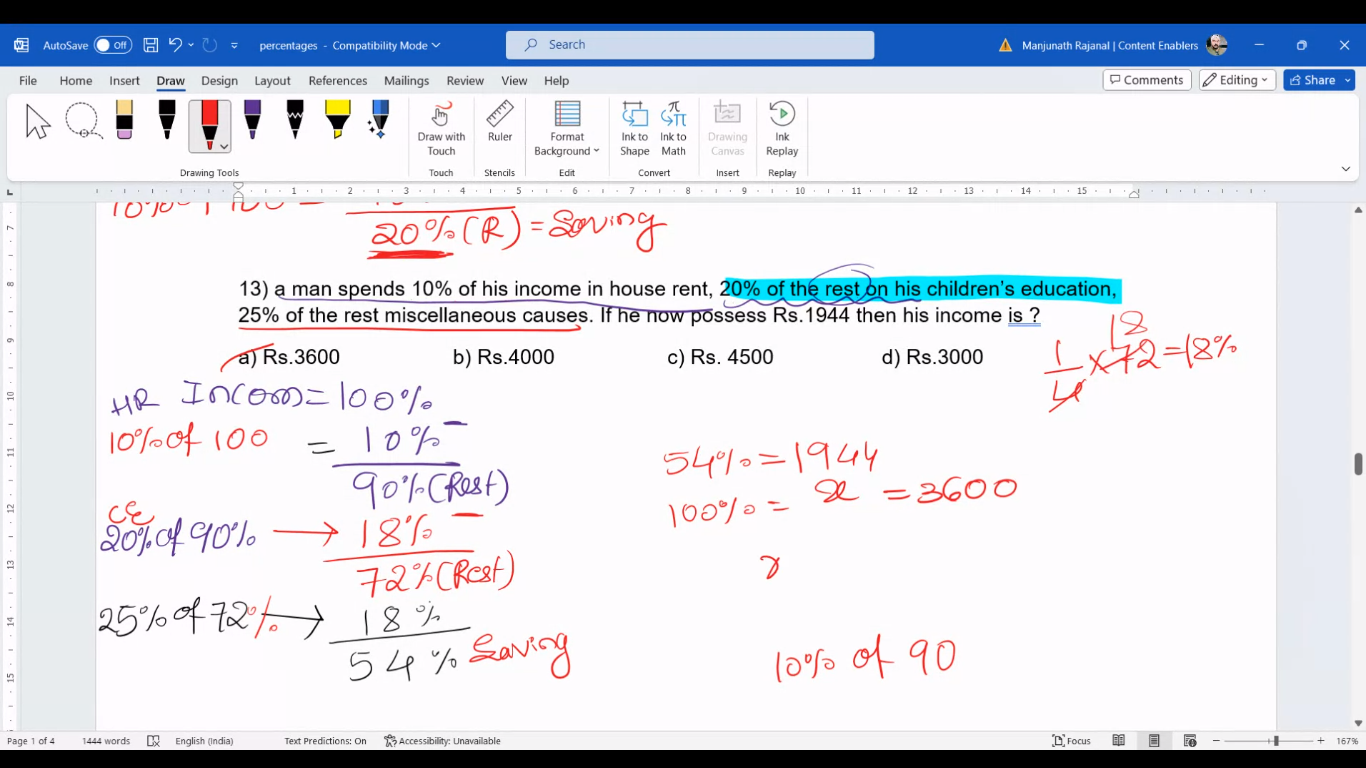 AutoSave Off percentages - Compatibility Mode Search Manjunath Rajanal | Content Enablers
File Home Insert Draw Design Layout References Mailings Review View Help Comments Editing Share
Draw with Touch Ruler Format Background Ink to Shape Ink to Math Drawing Canvas Ink Replay
Drawing Tools Touch Stencils Edit Convert Insert Replay
1 2 3 4 5 6 7 8 9 10 11 12 13 14 15
7 8 9 10 11 12 13 14 15
20% (R) = Saving
13) a man spends 10% of his income in house rent, 20% of the rest on his children's education,
25% of the rest miscellaneous causes. If he now possess Rs.1944 then his income is ?
a) Rs.3600 b) Rs.4000 c) Rs. 4500 d) Rs.3000
18
1/4 x 72 = 18%
HR Incom = 100%
10% of 100 = 10%
90% (Rest)
CE
20% of 90% → 18%
72% (Rest)
25% of 72% → 18%
54% Saving
54% = 1944
100% = x = 3600
10% of 90
Page 1 of 4 1444 words English (India) Text Predictions: On Accessibility: Unavailable Focus 167%